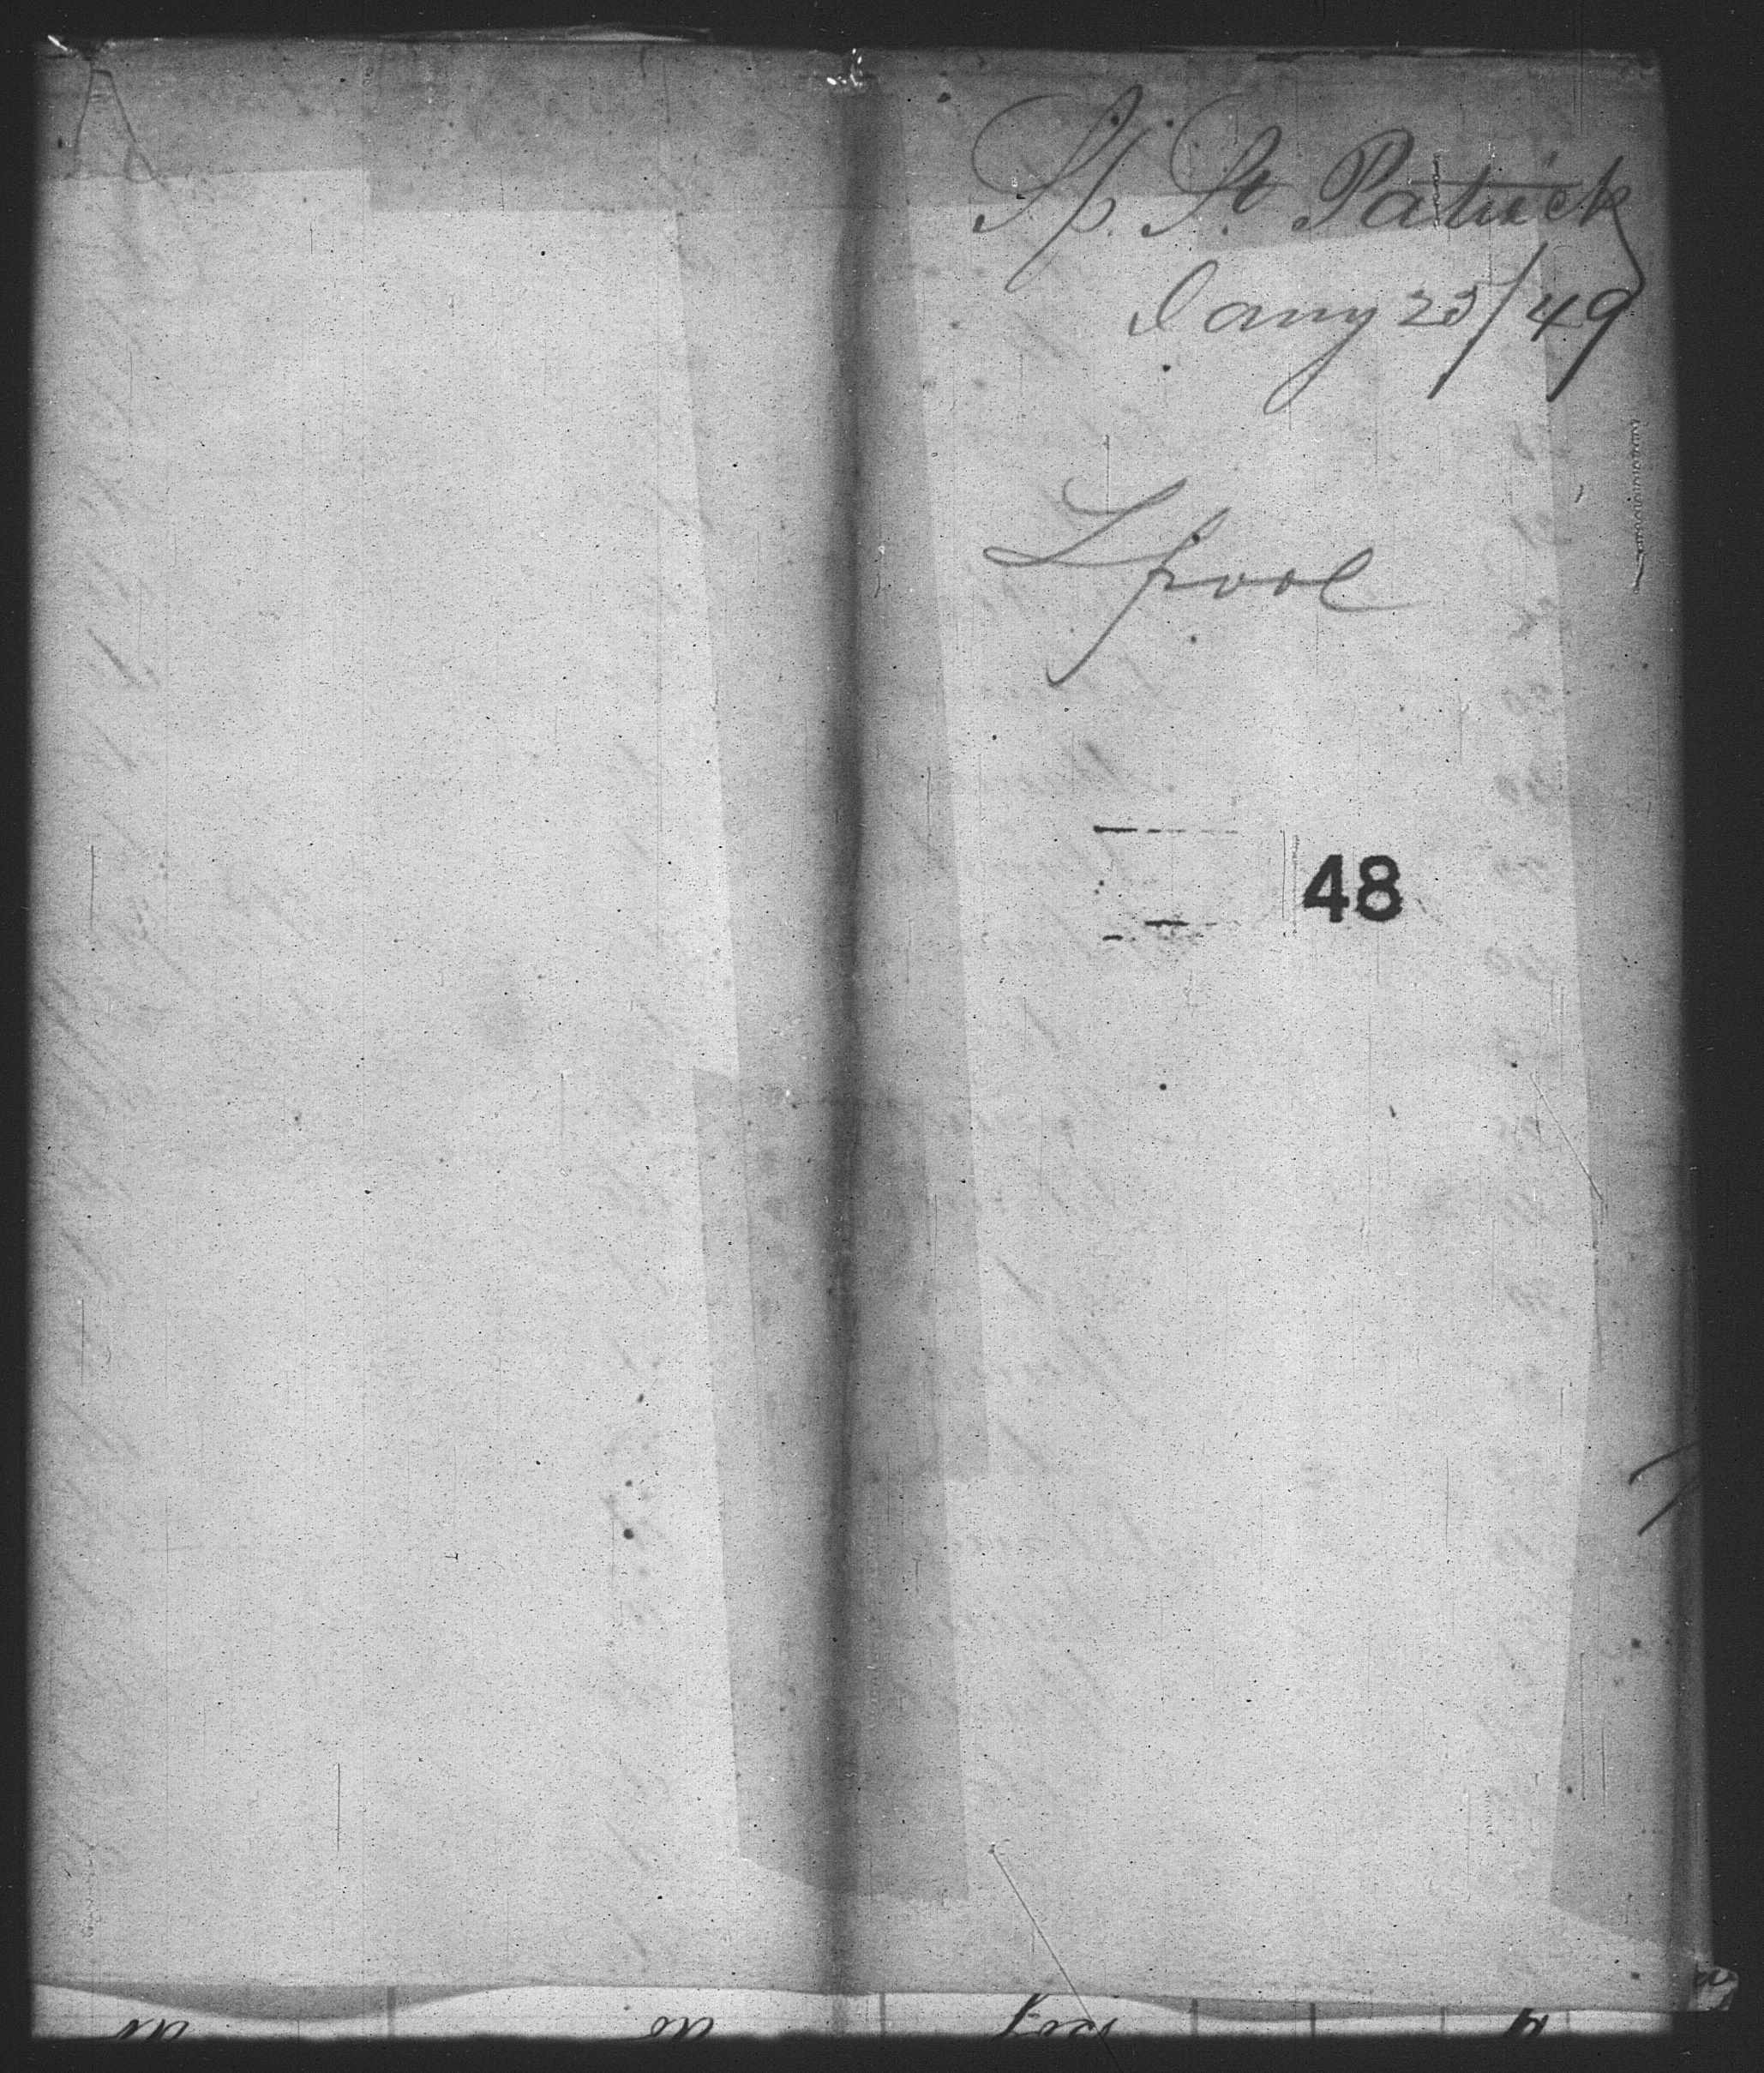 Sp. St Patrick
Jany 23/49
Lpool
48